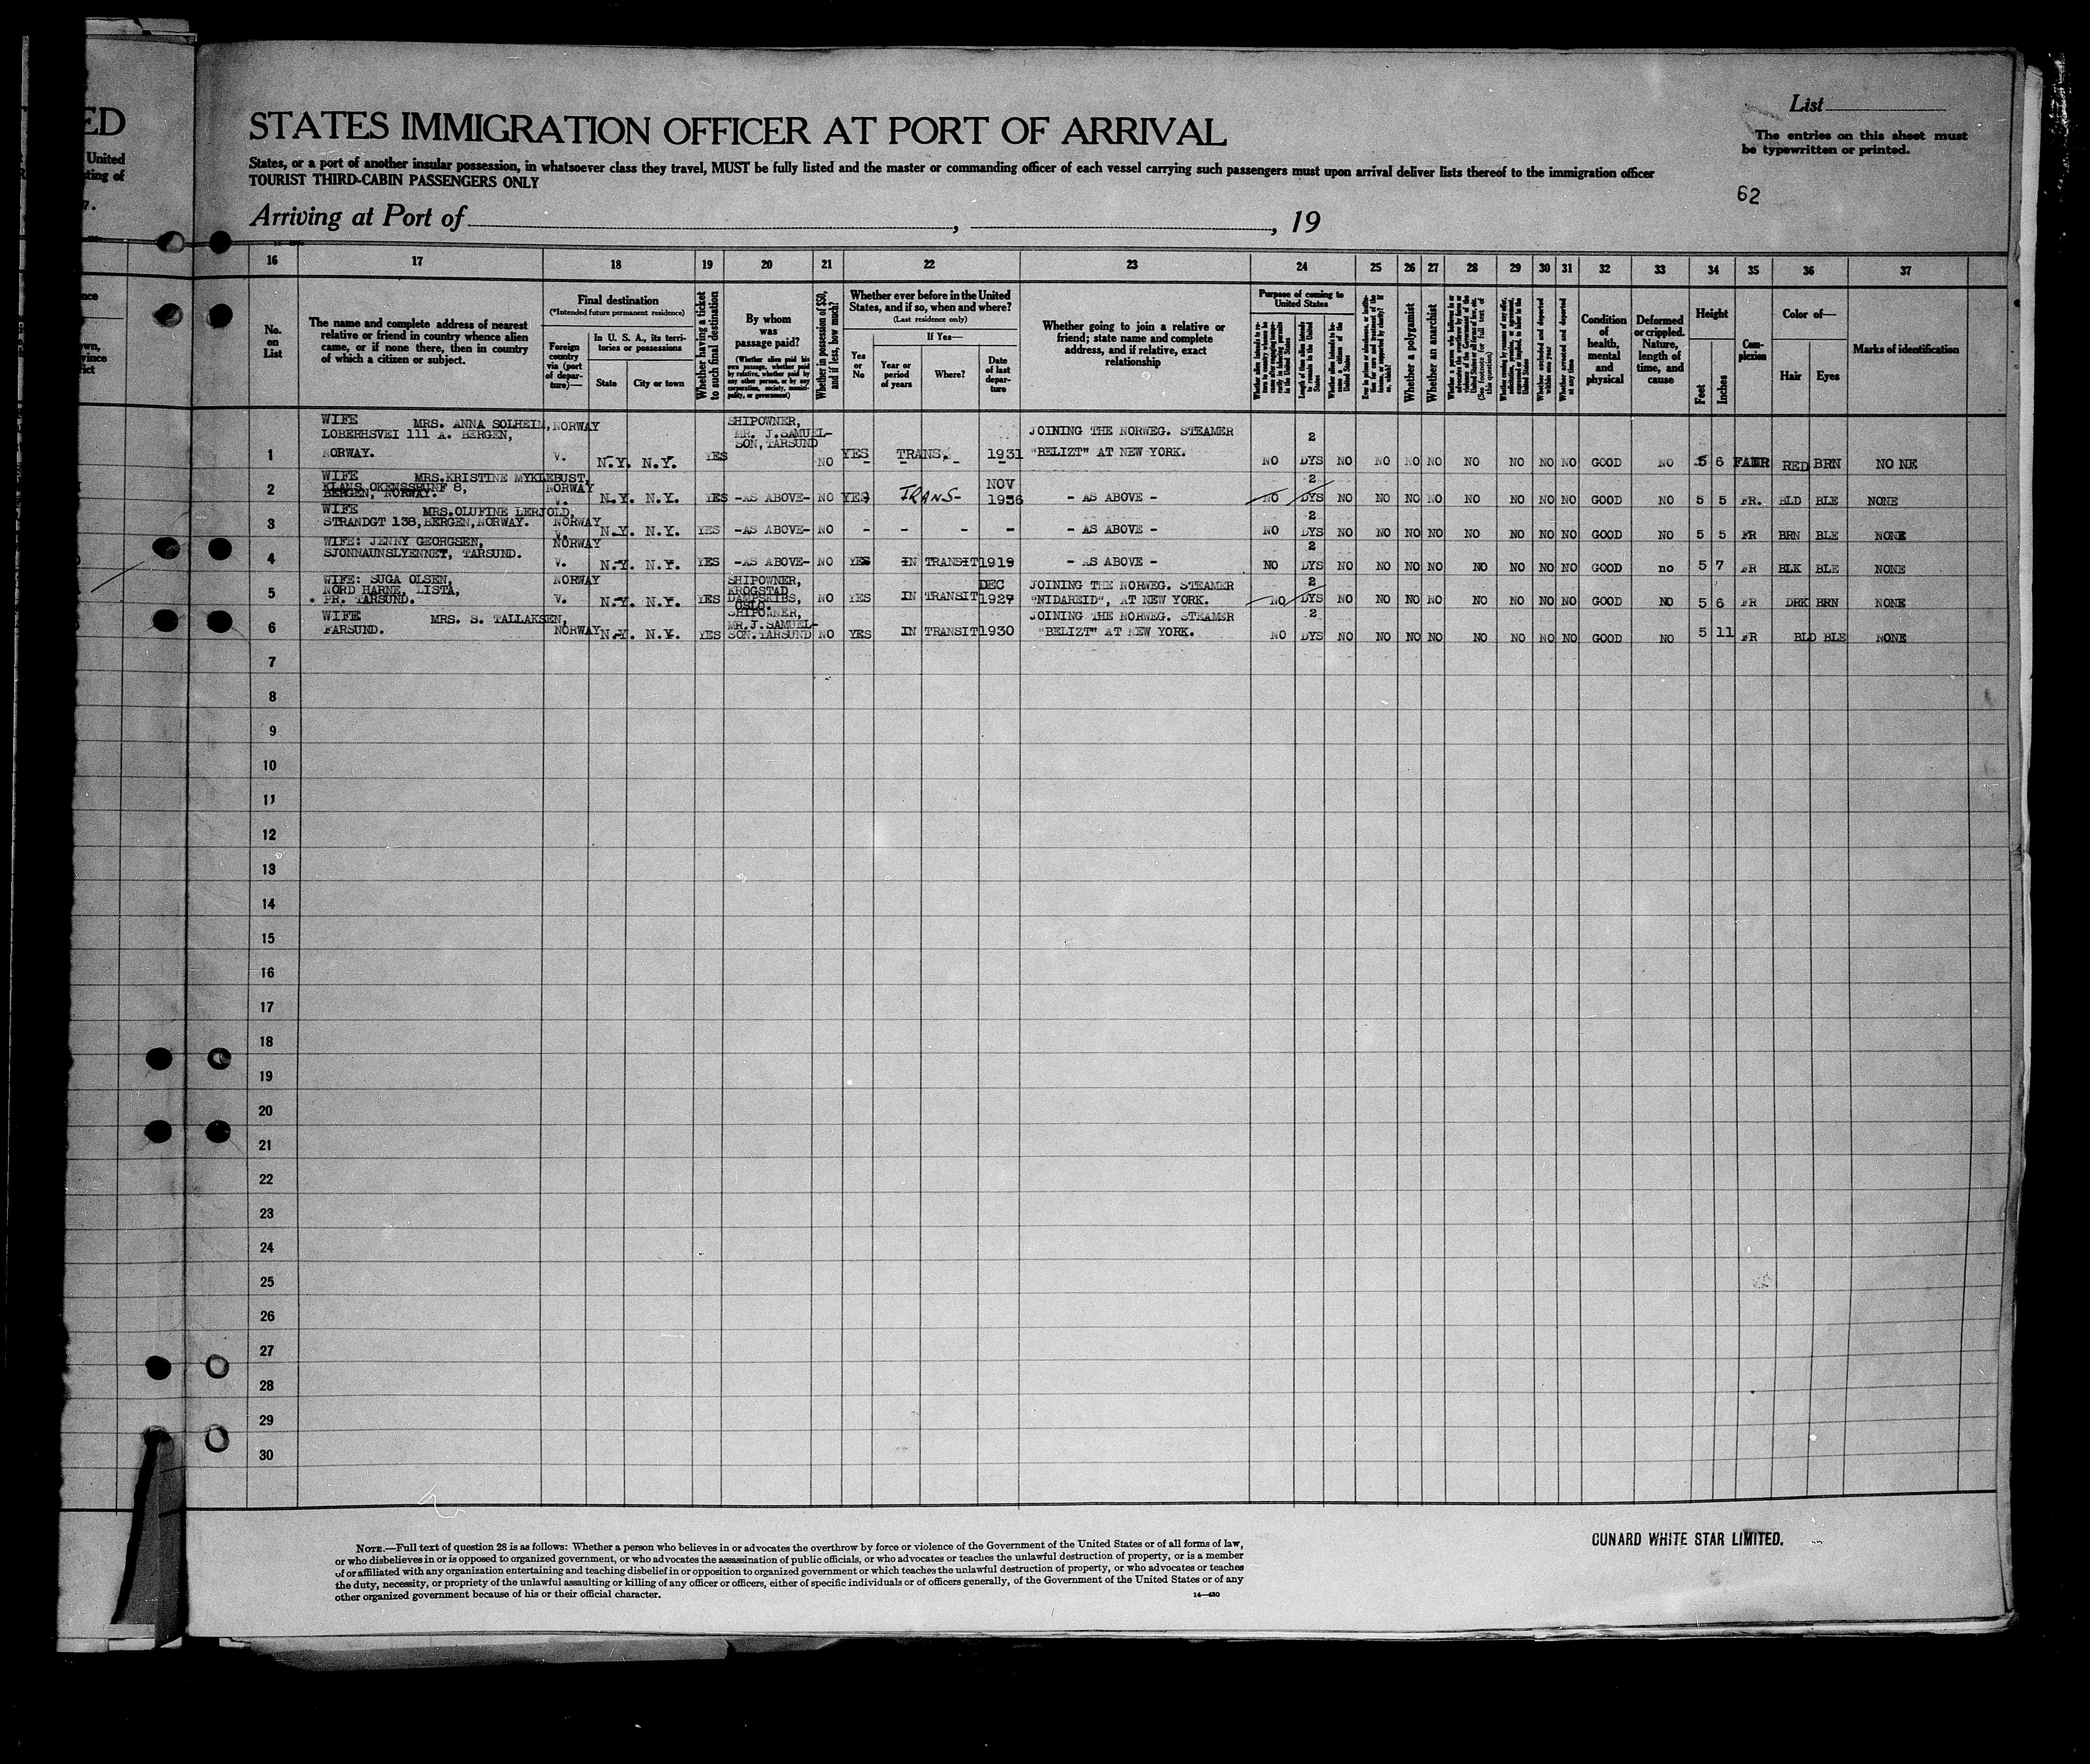 ED
United
ting of
7.
STATES IMMIGRATION OFFICER AT PORT OF ARRIVAL
List
The entries on this sheet must
be typewritten or printed.
States, or a port of another insular possession, in whatsoever class they travel, MUST be fully listed and the master or commanding officer of each vessel carrying such passengers must upon arrival deliver lists thereof to the immigration officer
TOURIST THIRD-CABIN PASSENGERS ONLY
62
Arriving at Port of , , 19
16 17 18 19 20 21 22 23 24 25 26 27 28 29 30 31 32 33 34 35 36 37
No.
on
List
The name and complete address of nearest
relative or friend in country whence alien
came, or if none there, then in country
of which a citizen or subject.
Final destination
(*Intended future permanent residence)
Foreign
country
via (port
of depar-
ture)—
In U. S. A., its terri-
tories or possessions
State City or town
Whether having a ticket
to such final destination
By whom
was
passage paid?
(Whether alien paid his
own passage, whether paid
by relative, whether paid by
any other person, or by any
corporation, society, munici-
pality, or government)
Whether in possession of $50,
and if less, how much?
Whether ever before in the United
States, and if so, when and where?
(Last residence only)
Yes
or
No
If Yes—
Year or
period
of years
Where?
Date
of last
depar-
ture
Whether going to join a relative or
friend; state name and complete
address, and if relative, exact
relationship
Purpose of coming to
United States
Length of time alien intends
to remain in the United
States
Whether a polygamist
Whether an anarchist
Condition
of
health,
mental
and
physical
Deformed
or crippled.
Nature,
length of
time, and
cause
Height
Feet Inches
Com-
plexion
Color of—
Hair Eyes
Marks of identification
1 WIFE MRS. ANNA SOLHEIM, NORWAY SHIPOWNER,
LOBERHSVEI 111 A. BERGEN, MR. J.SAMUEL- JOINING THE NORWEG. STEAMER 2
SON, TARSUND
NORWAY. V. N.Y. N.Y. YES NO YES TRANS. 1931 "BELIZT" AT NEW YORK. NO DYS NO NO NO NO NO NO NO NO GOOD NO 5 6 FAIR RED BRN NO NE
2 WIFE MRS.KRISTINE MYKLEBUST, NOV 2
KLAMS OKENSSBUNF 8, NORWAY
BERGEN, NORWAY. V. N.Y. N.Y. YES -AS ABOVE- NO YES TRANS- 1936 - AS ABOVE - NO DYS NO NO NO NO NO NO NO NO GOOD NO 5 5 FR. BLD BLE NONE
3 WIFE MRS.OLUFINE LERJOLD, 2
STRANDGT 138, BERGEN, NORWAY. NORWAY
V. N.Y. N.Y. YES -AS ABOVE- NO - - - - - AS ABOVE - NO DYS NO NO NO NO NO NO NO NO GOOD NO 5 5 FR BRN BLE NONE
4 WIFE: JENNY GEORGSEN, NORWAY 2
SJONNAUNSLYENNET, TARSUND.
V. N.Y. N.Y. YES -AS ABOVE- NO YES IN TRANSIT 1919 - AS ABOVE - NO DYS NO NO NO NO NO NO NO NO GOOD no 5 7 FR BLK BLE NONE
5 WIFE: SUGA OLSEN, NORWAY SHIPOWNER, DEC JOINING THE NORWEG. STEAMER 2
NORD HARNE, LISTA, KROGSTAD
PR. TARSUND. V. N.Y. N.Y. YES DAMPSKIBS, NO YES IN TRANSIT 1927 "NIDAREID", AT NEW YORK. NO DYS NO NO NO NO NO NO NO NO GOOD NO 5 6 FR DRK BRN NONE
OSLO.
6 WIFE MRS. S. TALLAKSEN, SHIPOWNER, JOINING THE NORWEG. STEAMER 2
MR.J.SAMUEL-
FARSUND. NORWAY N.Y. N.Y. YES SON. TARSUND NO YES IN TRANSIT 1930 "BELIZT" AT NEW YORK. NO DYS NO NO NO NO NO NO NO NO GOOD NO 5 11 FR BLD BLE NONE
7
8
9
10
11
12
13
14
15
16
17
18
19
20
21
22
23
24
25
26
27
28
29
30
NOTE.—Full text of question 28 is as follows: Whether a person who believes in or advocates the overthrow by force or violence of the Government of the United States or of all forms of law,
or who disbelieves in or is opposed to organized government, or who advocates the assassination of public officials, or who advocates or teaches the unlawful destruction of property, or is a member
of or affiliated with any organization entertaining and teaching disbelief in or opposition to organized government or which teaches the unlawful destruction of property, or who advocates or teaches
the duty, necessity, or propriety of the unlawful assaulting or killing of any officer or officers, either of specific individuals or of officers generally, of the Government of the United States or of any
other organized government because of his or their official character.
14—430
CUNARD WHITE STAR LIMITED.